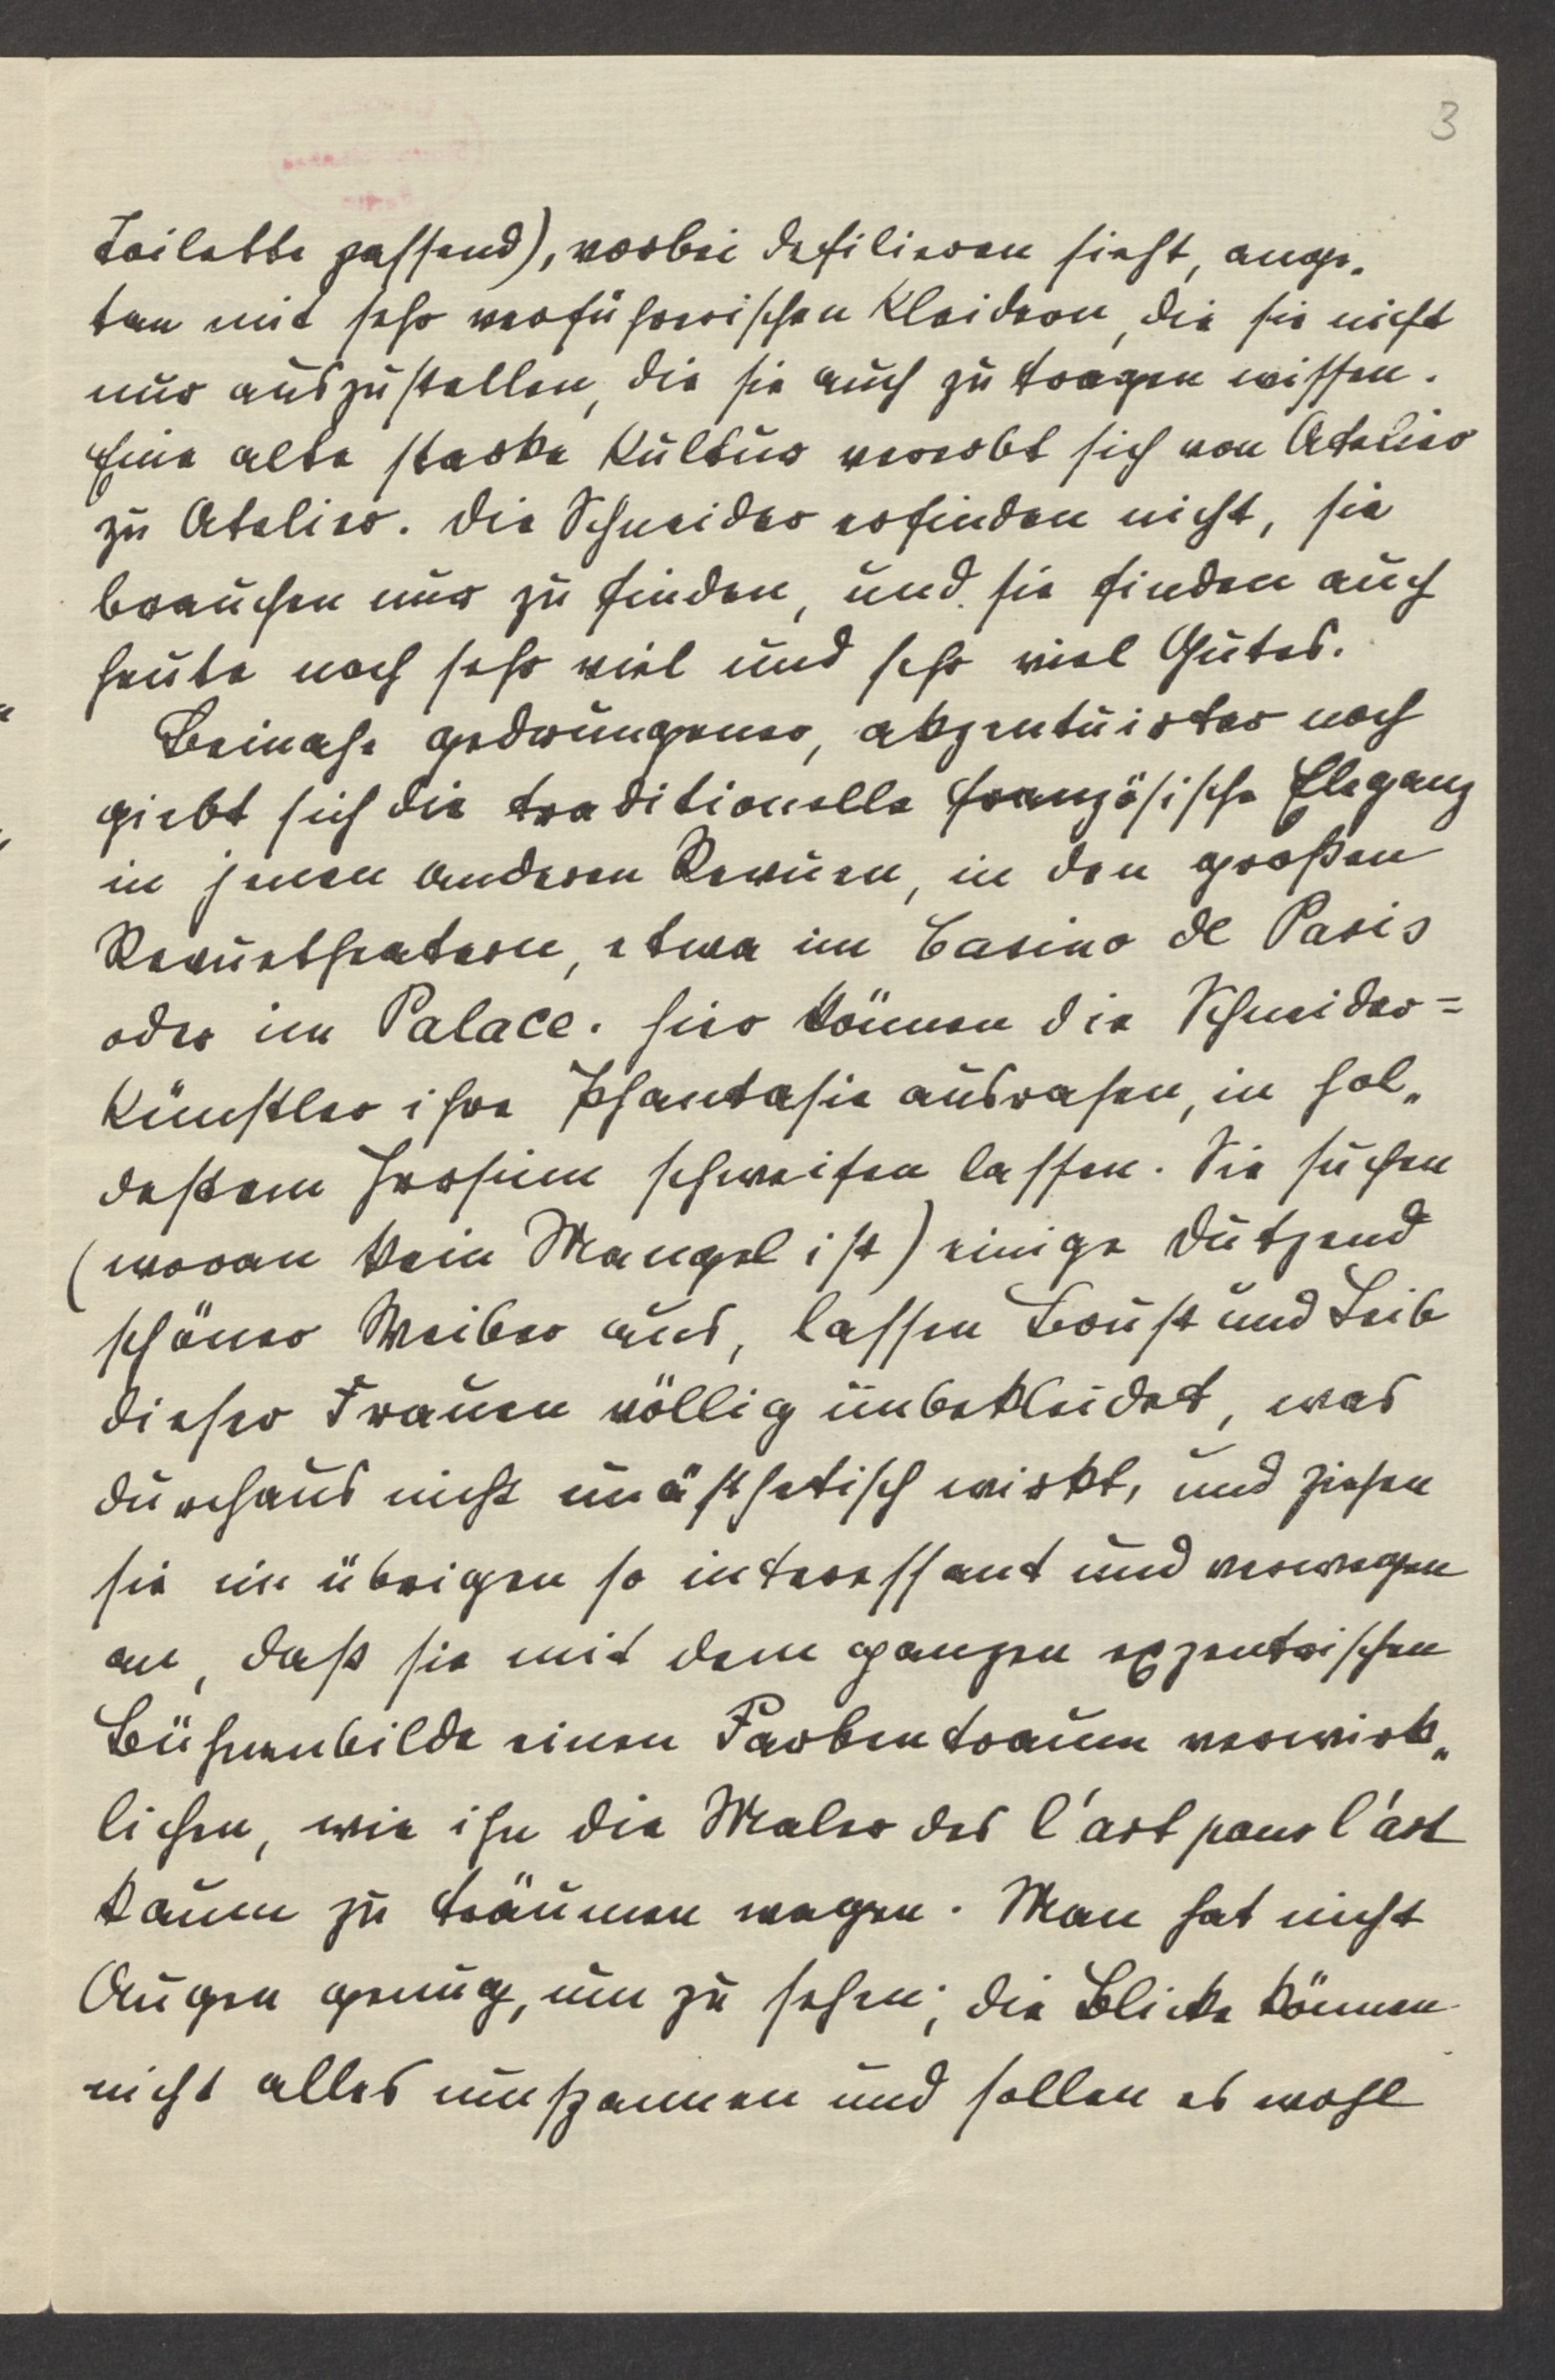 3
Toilette passend), vorbei defilieren sieht, ange-
tan mit sehr verführerischen Kleidern, die sie nicht
nur auszustellen, die sie auch zu tragen wissen.
Eine alte starke Kultur vererbt sich von Atelier
zu Atelier. Die Schneider erfinden nicht, sie
brauchen nur zu finden, und sie finden auch
heute noch sehr viel und sehr viel Gutes.
Beinahe gedrungener, akzentuirter noch
giebt sich die traditionelle französische Eleganz
in jenen anderen Revuen, in den großen
Revuetheatern, etwa im Casino de Paris
oder im Palace. Hier können die Schneider=
künstler ihre Phantasie ausrasen, in hol-
destem Irrsinn schweifen lassen. Sie suchen
(woran kein Mangel ist) einige Dutzend
schöner Weiber aus, lassen Brust und Leib
dieser Frauen völlig unbekleidet, was
durchaus nicht unästhetisch wirkt, und ziehen
sie im übrigen so interessant und verwegen
an, daß sie mit dem ganzen exzentrischen
Bühnenbilde einen Farbentraum verwirk-
lichen, wie ihn die Maler des l'art pour l'art
kaum zu träumen wagen. Man hat nicht
Augen genug, um zu sehen; die Blicke können
nicht alles umspannen und sollen es wohl